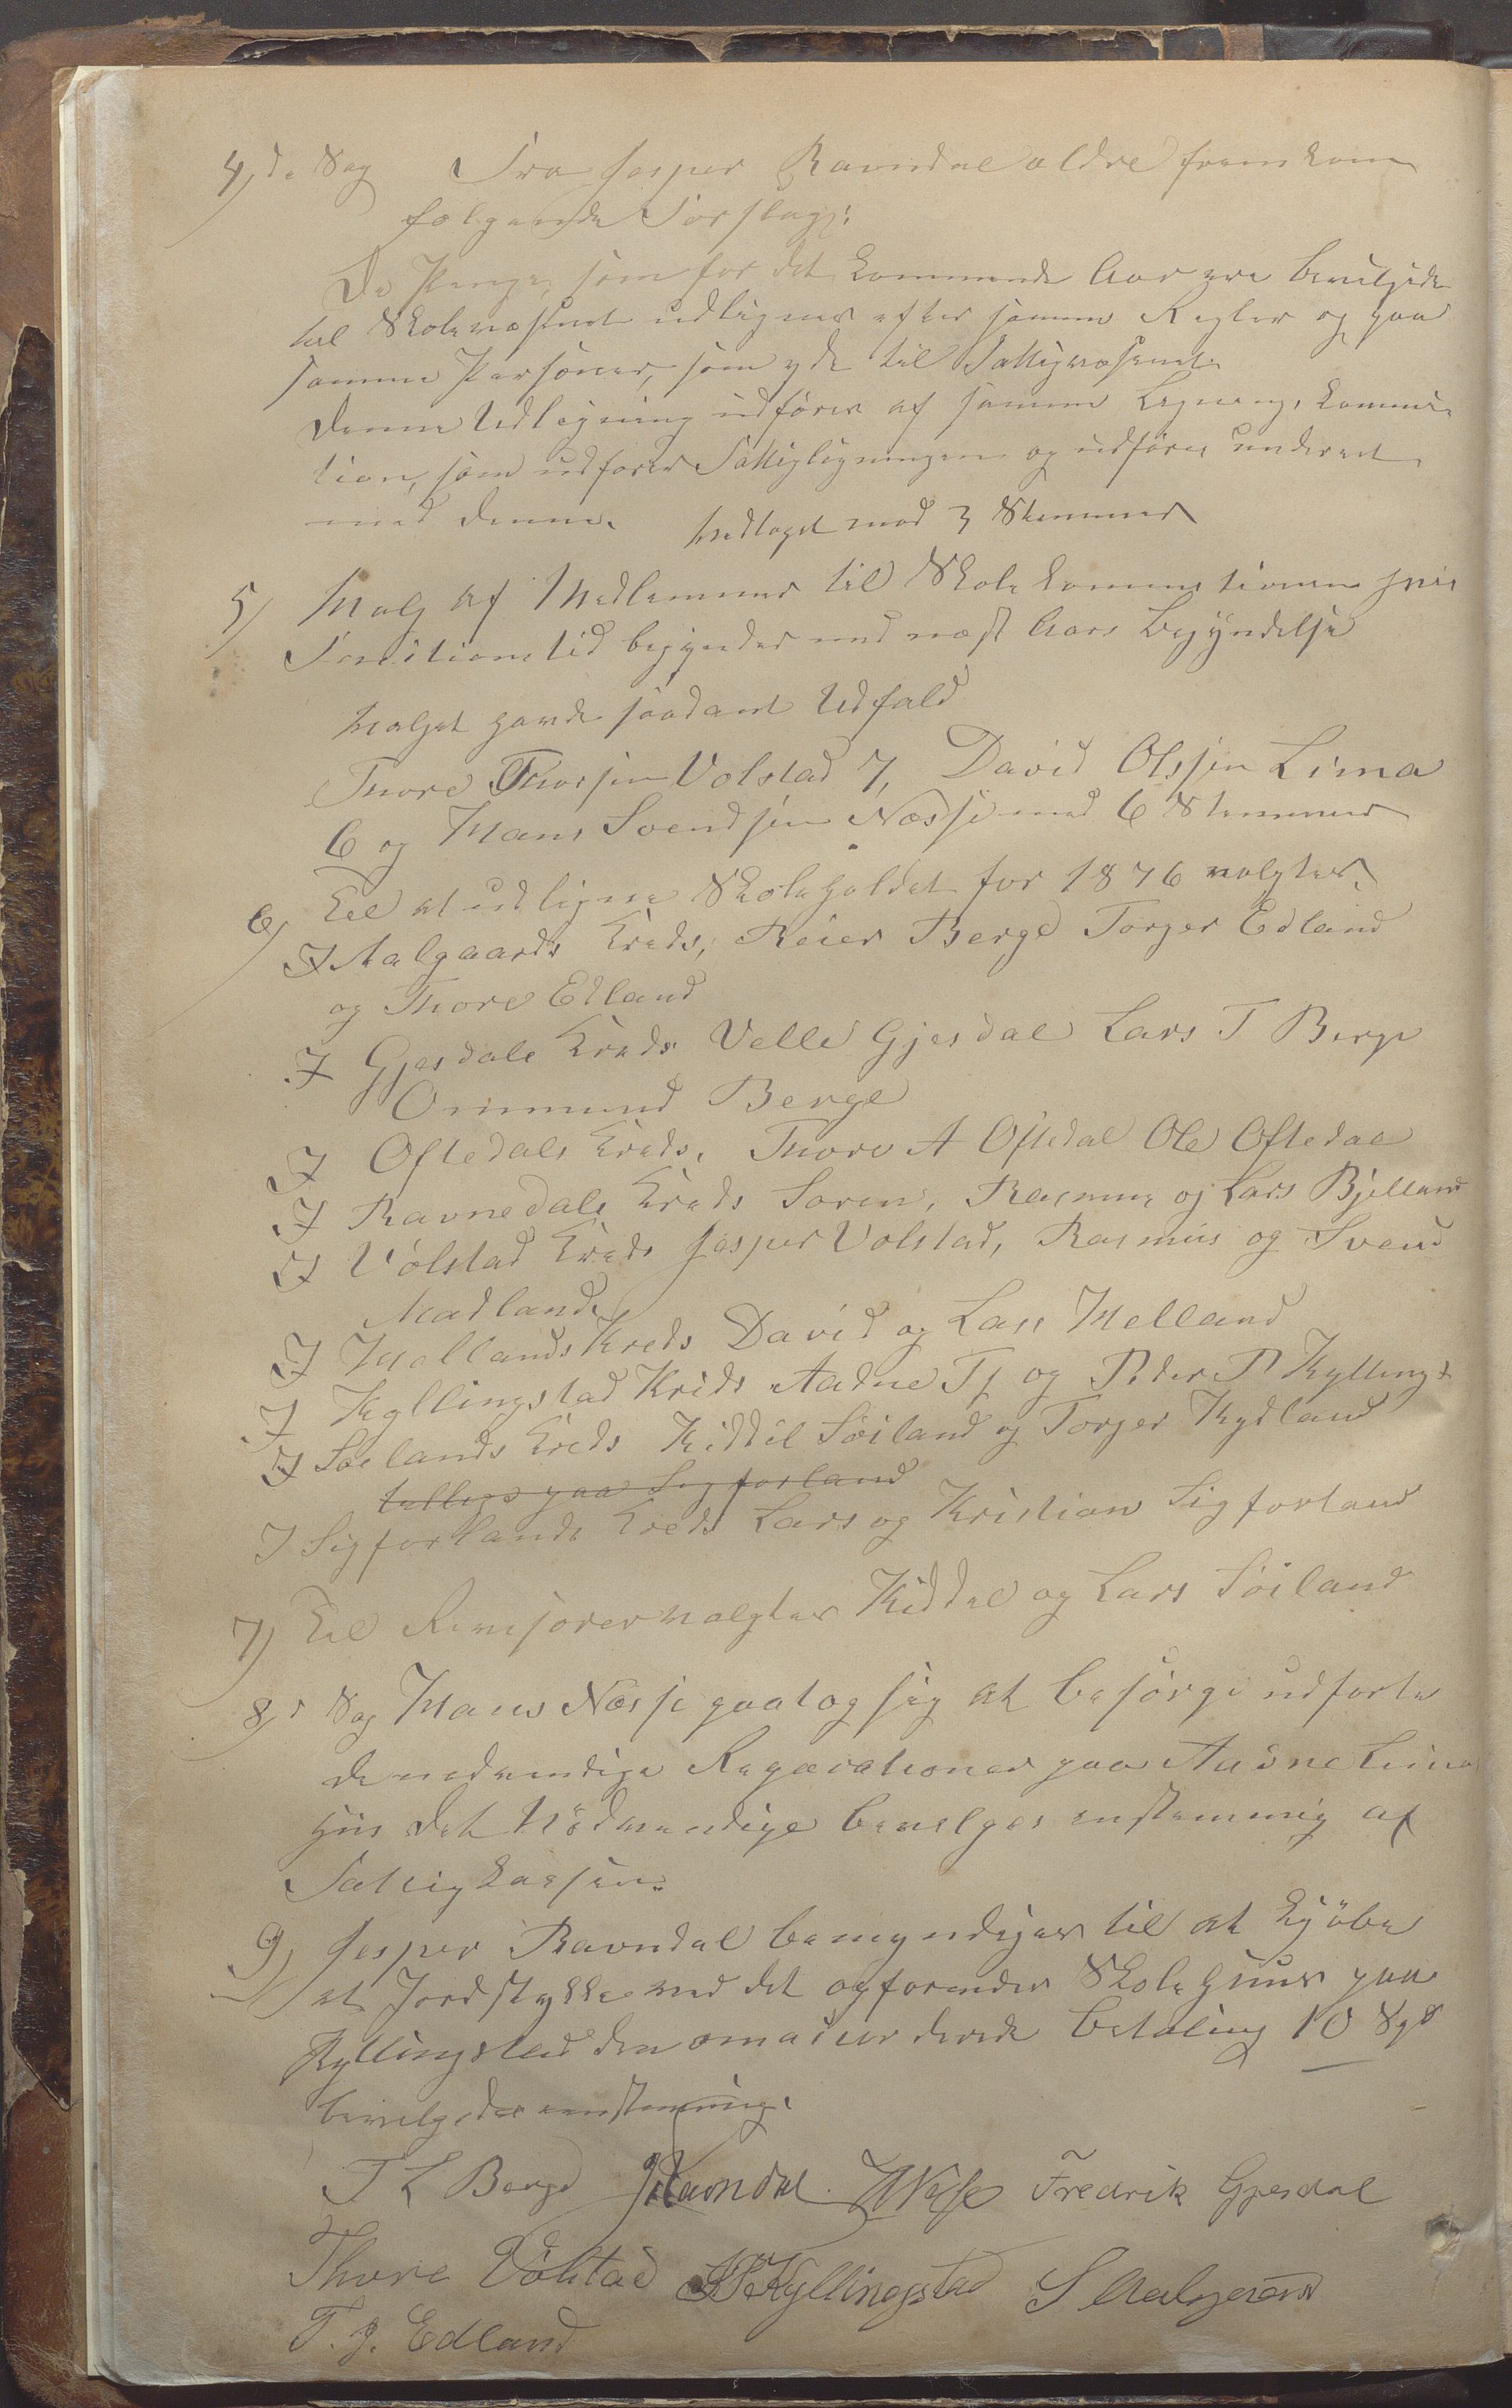 4, de Sag Fra Jesper Ravndal ældre fremkom
følgende Forslag:
De Penge, som for det kommende Aar ere bevilgede
til Skolevæsenet udlignes efter samme Regler og paa
samme Personer, som yde til Fattigvæsenet.
Denne Udligning udføres af samme Lignings kommis-
tion, som udfører Fattigligningen og udføres underet
med denne. Vedtaget mod 3 Stemmer
5) Valg af Medlemmer til Skolekommistionen hvis
Funktionstid begynder med næst Aars Begyndelse
Valget havde saadant Udfald
Thore Thorsen Volstad 7, David Olssen Lima
6 og Hans Svendsen Næsse med 6 Stemmer
6) Til at udligne Skoleholdet for 1876 valgtes
I Aalgaards Kreds, Reier Berge Torger Edland
og Thore Edland
I Gjesdals Kreds Velle Gjesdal Lars T Berge
Ommund Berge
I Oftedals Kreds, Thore A Oftedal Ole Oftedal
I Ravnedals Kreds Søren, Rasmus og Lars Bjelland
I Vølstad Kreds Jesper Volstad, Rasmus og Svend
Madland
I Mellands Kreds David og Lars Melland
I Kyllingstad Kreds Aadne Tj og Peder P Kyllingst
I Søilands Kreds Kiddil Søiland og Torger Kydland
fælleds paa Sigforland
I Sigforlands Kreds Lars og Kristian Sigforland
7) Til Revisorer valgtes Kiddel og Lars Söiland
8, s Sag Hans Næsse paatog sig at besørge udførte
de nødvendige Reparationer paa Aadne Lima
Hus det Nödvendige bevilges enstemmig af
Fattigkassen.
9) Jesper Ravndal bemyndiges til at kjöbe
et Jordstykke ved det opførendes Skolehuus paa
Kyllingstad den omadvorderede betaling 10 Spd
bevilgedes eenstemmig.
T L Berge JRavndal. HNesse Fredrik Gjesdal
Thore Vølstad PKyllingstad S Aalgaard
T. J. Edland